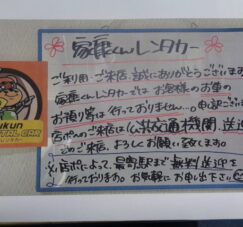 家電くんレンタカー
ご利用・ご来店、誠にありがとうございます
家電くんレンタカーでは お客様のお車の
お預り等は行っておりません…。申訳ござ
店ポへのご来店は公共交通機関、送迎
でのご来店、よろしくお願い致します。
※店ポによって、最寄駅まで無料送迎を
行っております。お気軽にお申し出下さい。
KUN
TAL CAR
レンタカー